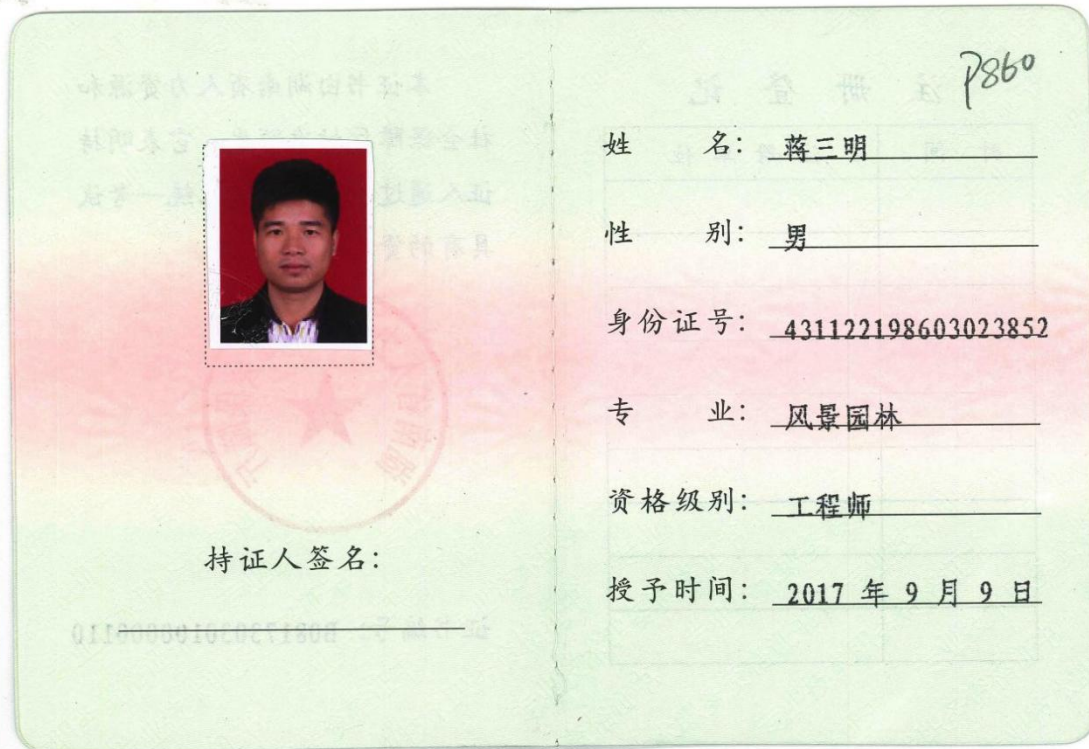 P860
姓 名: 蒋三明
性 别: 男
身份证号: 431122198603023852
专 业: 风景园林
资格级别: 工程师
授予时间: 2017 年 9 月 9 日
持证人签名: